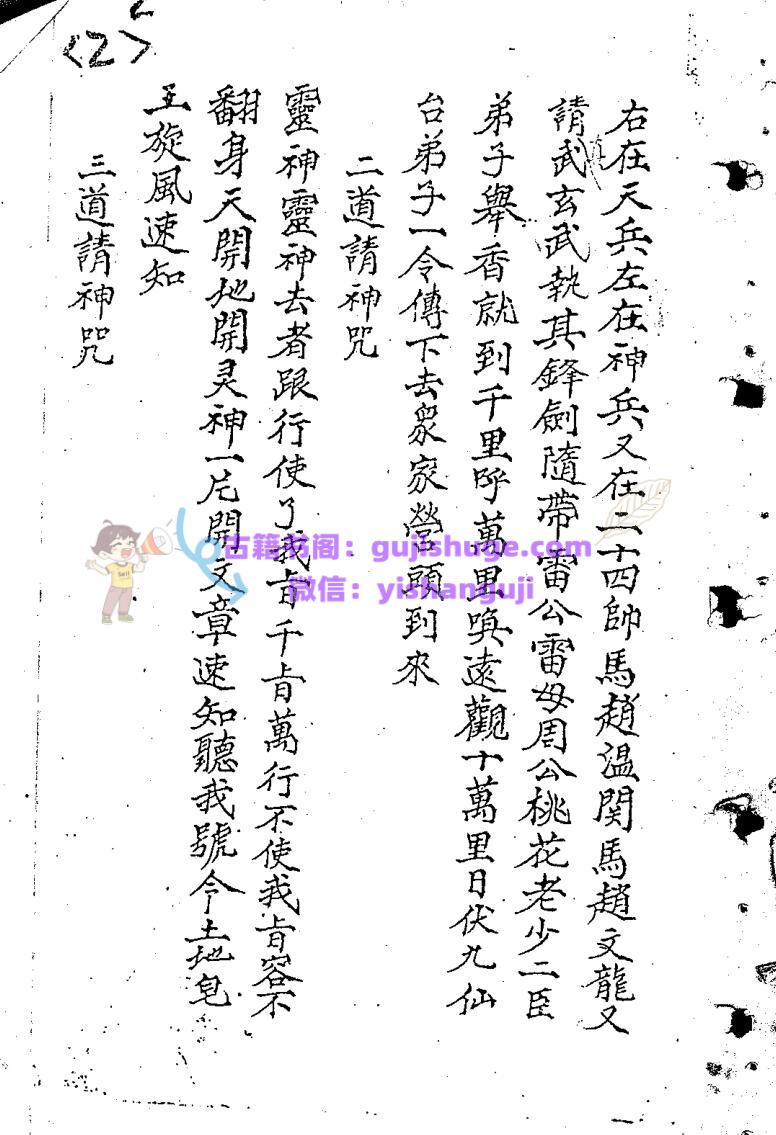 <2>
右在天兵左在神兵又在二十四帥馬趙温関馬趙文龍又
請武玄武執其鋒劍隨帶雷公雷母周公桃花老少二臣
弟子舉香就到千里呼萬里喚遠觀十萬里日伏九仙
台弟子一令傳下去衆家營頭到來
二道請神咒
靈神靈神去者跟行使了我肯千肯萬行不使我肯容不
翻身天開地開灵神一片開文章速知聽我號令土地皂
王旋風速知
三道請神咒
古籍书阁：gujishuge.com
微信：yishanguji